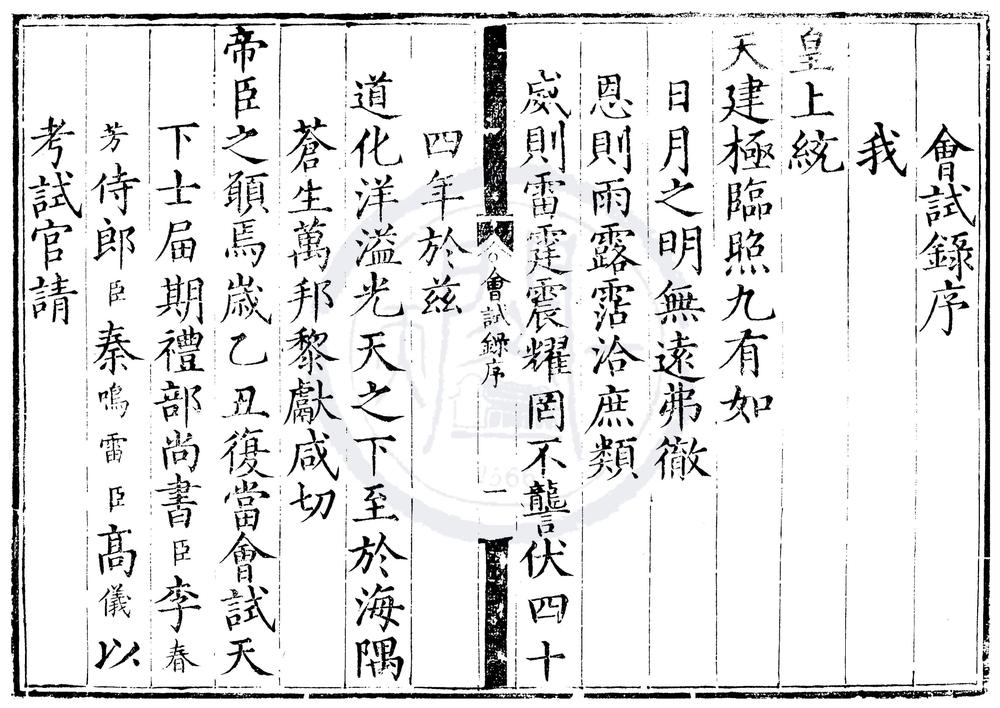 會試錄序
我
皇上統
天建極臨照九有如
日月之明無遠弗徹
恩則雨露霑洽庶類
威則雷霆震耀罔不讋伏四十
會試錄序
一
四年於茲
道化洋溢光天之下至於海隅
蒼生萬邦黎獻咸切
帝臣之願焉歲乙丑復當會試天
下士屆期禮部尚書臣李春
芳侍郎臣秦鳴雷臣高儀以
考試官請